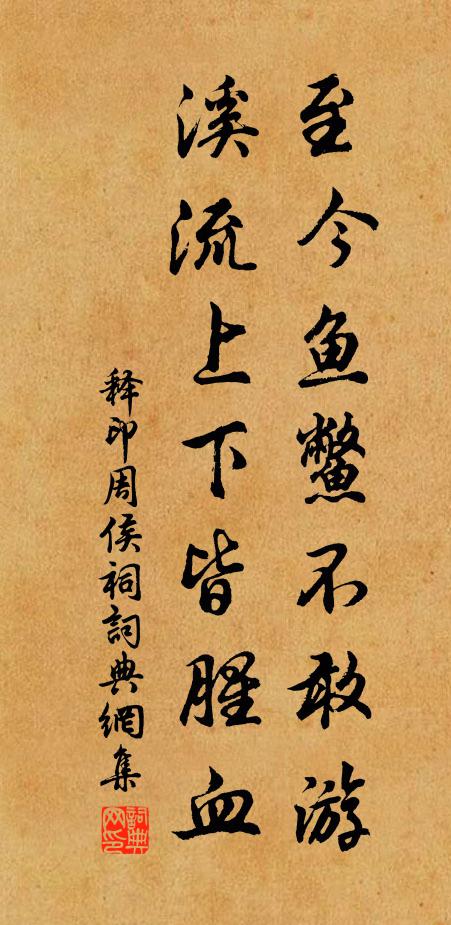 至今鱼鳖不敢游
溪流上下皆腥血
释印周侯祠詞典網集
詞典网印